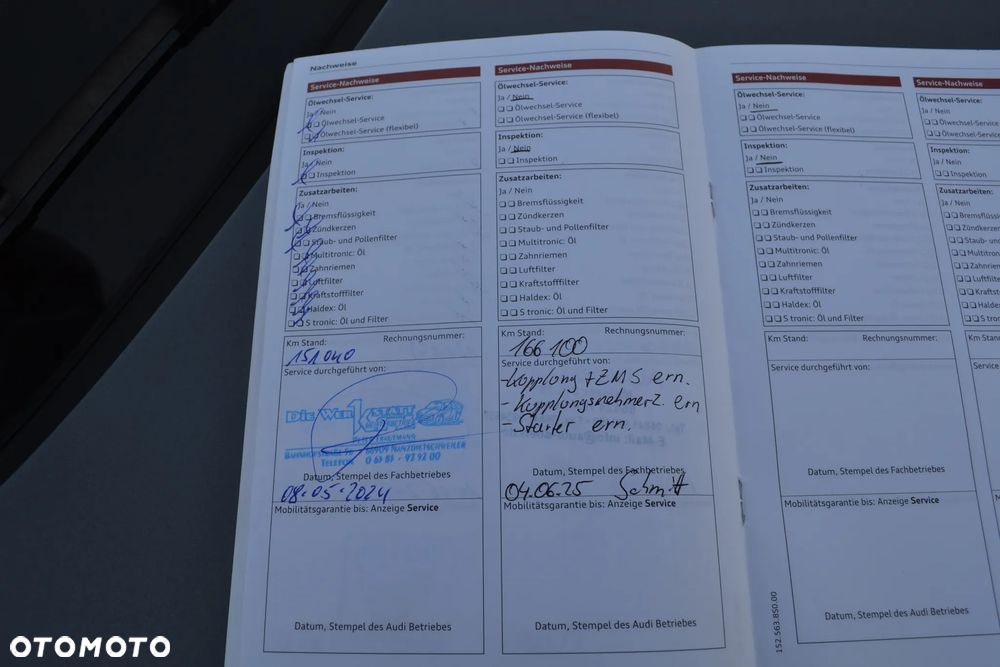 Nachweise
Service-Nachweise
Ölwechsel-Service:
Ja / Nein
Ölwechsel-Service
Ölwechsel-Service (flexibel)
Inspektion:
Ja / Nein
Inspektion
Zusatzarbeiten:
Ja / Nein
Bremsflüssigkeit
Zündkerzen
Staub- und Pollenfilter
Multitronic: Öl
Zahnriemen
Luftfilter
Kraftstofffilter
Haldex: Öl
S tronic: Öl und Filter
Km Stand:
Rechnungsnummer:
151040
Service durchgeführt von:
Die Wer
STADT
BAHNHOFSTRAßE 56 • 66909 NANZDIETSCHWEILER
TELEFON 0 63 83 - 92 92 00
Datum, Stempel des Fachbetriebes
08.05.2024
Mobilitätsgarantie bis: Anzeige Service
Datum, Stempel des Audi Betriebes
Service-Nachweise
Ölwechsel-Service:
Ja / Nein
Ölwechsel-Service
Ölwechsel-Service (flexibel)
Inspektion:
Ja / Nein
Inspektion
Zusatzarbeiten:
Ja / Nein
Bremsflüssigkeit
Zündkerzen
Staub- und Pollenfilter
Multitronic: Öl
Zahnriemen
Luftfilter
Kraftstofffilter
Haldex: Öl
S tronic: Öl und Filter
Km Stand:
Rechnungsnummer:
166 100
Service durchgeführt von:
- Kupplung + ZMS ern.
- Kupplungsnehmerz. ern
- Starter ern.
Datum, Stempel des Fachbetriebes
04.06.25 Schmitt
Mobilitätsgarantie bis: Anzeige Service
Datum, Stempel des Audi Betriebes
Service-Nachweise
Ölwechsel-Service:
Ja / Nein
Ölwechsel-Service
Ölwechsel-Service (flexibel)
Inspektion:
Ja / Nein
Inspektion
Zusatzarbeiten:
Ja / Nein
Bremsflüssigkeit
Zündkerzen
Staub- und Pollenfilter
Multitronic: Öl
Zahnriemen
Luftfilter
Kraftstofffilter
Haldex: Öl
S tronic: Öl und Filter
Km Stand:
Rechnungsnummer:
Service durchgeführt von:
Datum, Stempel des Fachbetriebes
Mobilitätsgarantie bis: Anzeige Service
Datum, Stempel des Audi Betriebes
152.563.850.00
Service-Nachweise
Ölwechsel-Service:
Ja / Nein
Ölwechsel-Service
Ölwechsel-Servic
Inspektion:
Ja / Nein
Inspektion
Zusatzarbeiten:
Ja / Nein
Bremsflüssi
Zündkerzen
Staub- und
Multitronic
Zahnriemen
Luftfilter
Kraftst
Haldex: Öl
S tronic
Km Stan
Service
Datu
Mobil
OTOMOTO